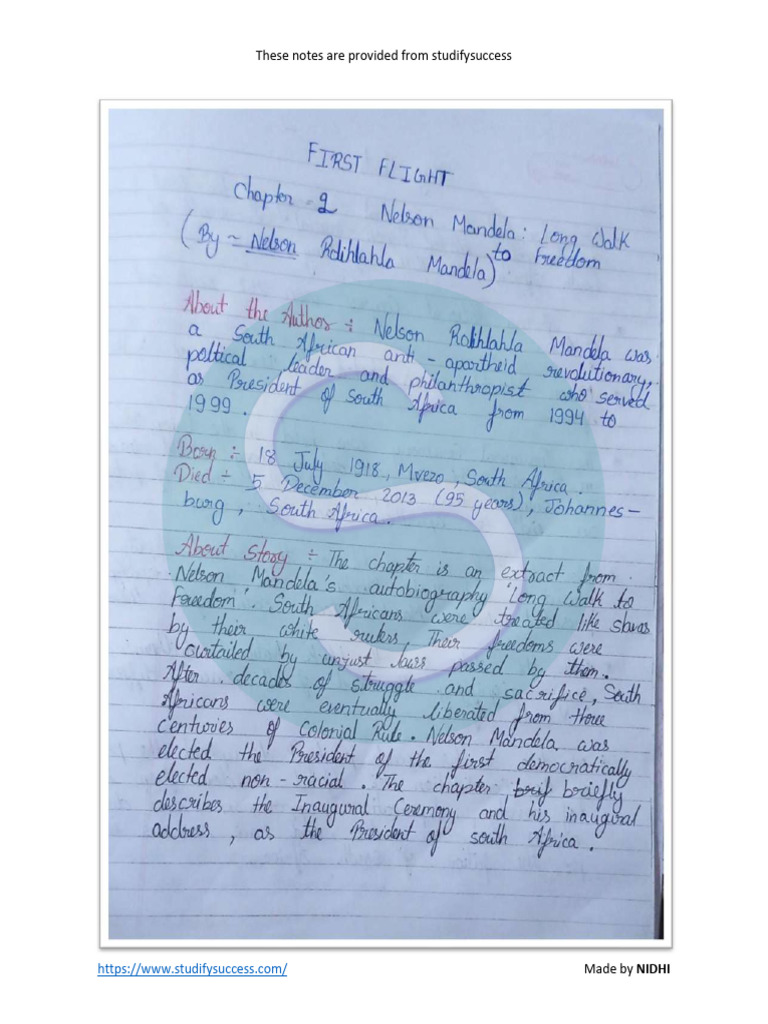 These notes are provided from studifysuccess
FIRST FLIGHT
Chapter - 2 Nelson Mandela: Long Walk
to Freedom
(By ~ Nelson Rolihlahla Mandela)
About the Author ÷ Nelson Rolihlahla Mandela was
a South African anti-apartheid revolutionary,
political leader and philanthropist who served
as President of South Africa from 1994 to
1999.
Born ÷ 18 July 1918, Mvezo, South Africa.
Died ÷ 5 December 2013 (95 years), Johannes-
burg, South Africa.
About story ÷ The chapter is an extract from
Nelson Mandela's autobiography 'Long Walk to
Freedom'. South Africans were treated like slaves
by their white rulers. Their freedoms were
curtailed by unjust laws passed by them.
After decades of struggle and sacrifice, South
Africans were eventually liberated from three
centuries of Colonial Rule. Nelson Mandela was
elected the President of the first democratically
elected non-racial. The chapter brif briefly
describes the Inaugural Ceremony and his inaugural
address, as the President of south Africa.
https://www.studifysuccess.com/ Made by NIDHI